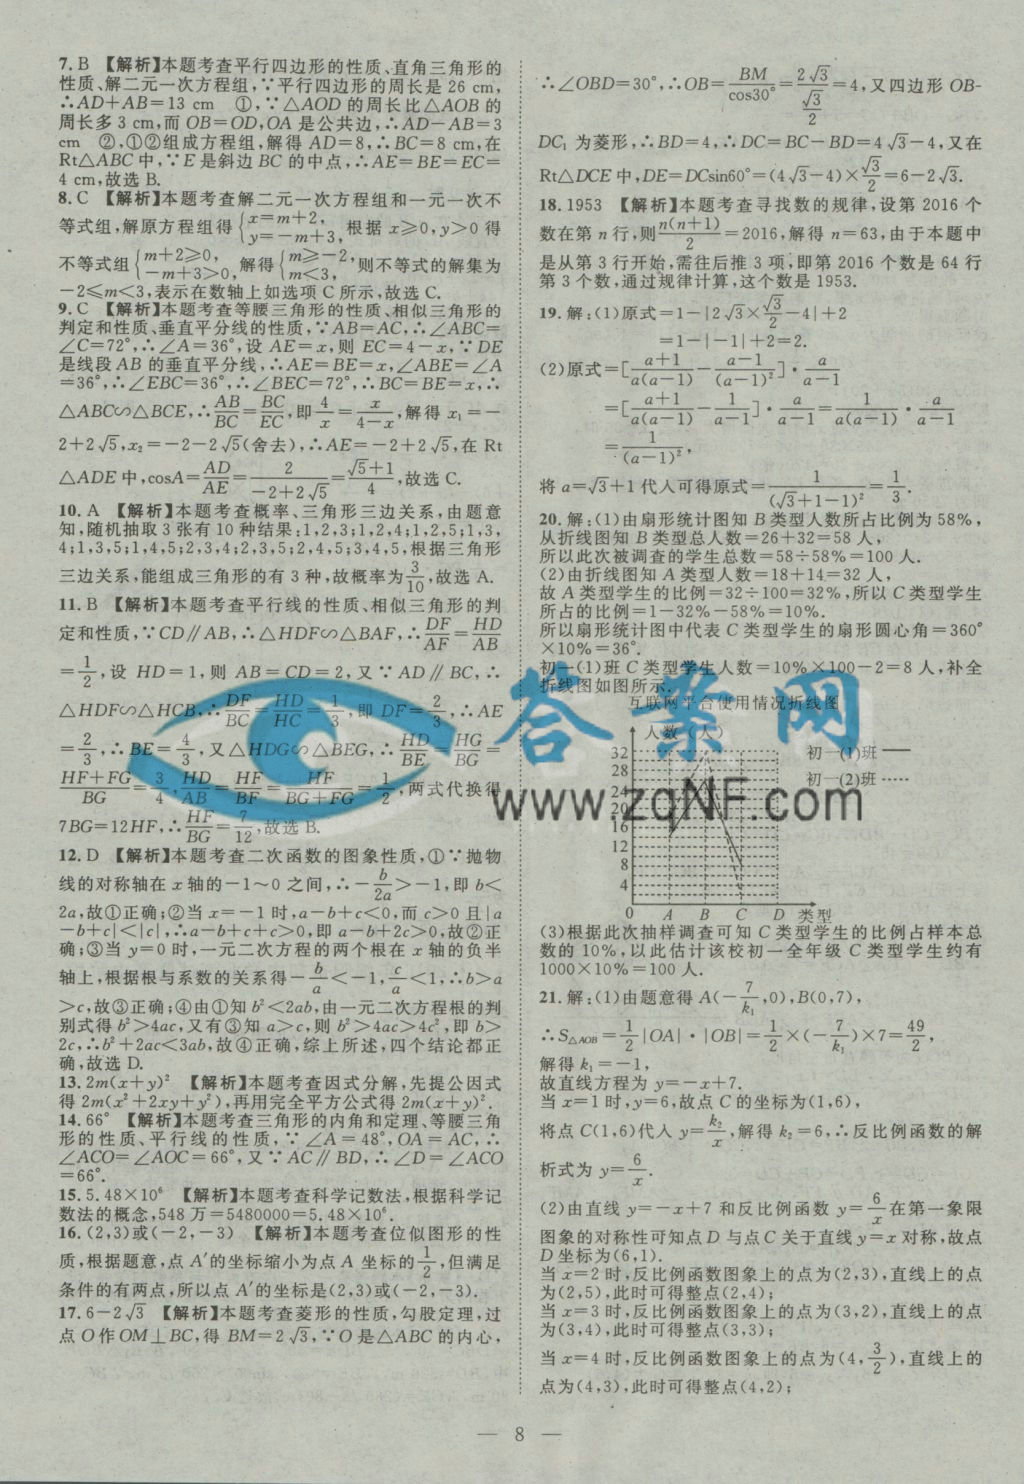 7. B 【解析】本题考查平行四边形的性质、直角三角形的
性质、解二元一次方程组,∵平行四边形的周长是 26 cm,
∴AD+AB=13 cm ①,∵△AOD 的周长比△AOB 的
周长多 3 cm,而 OB=OD,OA 是公共边,∴AD-AB=3
cm ②,①②组成方程组,解得 AD=8,∴BC=8 cm,在
Rt△ABC 中,∵E 是斜边 BC 的中点,∴AE=BE=EC=
4 cm,故选 B.
8. C 【解析】本题考查解二元一次方程组和一元一次不
等式组,解原方程组得{x=m+2, y=-m+3, 根据 x≥0,y>0 得
不等式组{m+2≥0, -m+3>0, 解得{m≥-2, m<3, 则不等式的解集为
-2≤m<3,表示在数轴上如选项 C 所示,故选 C.
9. C 【解析】本题考查等腰三角形的性质、相似三角形的
判定和性质、垂直平分线的性质,∵AB=AC,∴∠ABC=
∠C=72°,∴∠A=36°,设 AE=x,则 EC=4-x,∵DE
是线段 AB 的垂直平分线,∴AE=BE=x,∠ABE=∠A
=36°,∴∠EBC=36°,∴∠BEC=72°,∴BC=BE=x,∴
△ABC∽△BCE,∴AB/BC=BC/EC,即4/x=x/(4-x),解得 x₁=-
2+2√5,x₂=-2-2√5(舍去),∴AE=-2+2√5,在 Rt
△ADE 中,cosA=AD/AE=2/(-2+2√5)=(√5+1)/4,故选 C.
10. A 【解析】本题考查概率、三角形三边关系,由题意
知,随机抽取 3 张有 10 种结果:1,2,3;1,2,4;1,2,5;1,3,
4;1,3,5;1,4,5;2,3,4;2,3,5;2,4,5;3,4,5,根据三角形
三边关系,能组成三角形的有 3 种,故概率为3/10,故选 A.
11. B 【解析】本题考查平行线的性质、相似三角形的判
定和性质,∵CD∥AB,∴△HDF∽△BAF,∴DF/AF=HD/AB
=1/2,设 HD=1,则 AB=CD=2,又∵AD∥BC,∴
△HDF∽△HCB,∴DF/BC=HD/HC=1/3,即 DF=2/3,∴AE
=2/3,∴BE=4/3,又△HDG∽△BEG,∴HD/BE=HG/BG=
(HF+FG)/BG=3/4,HD/AB=HF/BF=HF/(BG+FG)=1/2,两式代换得
7BG=12HF,∴HF/BG=7/12,故选 B.
12. D 【解析】本题考查二次函数的图象性质,①∵抛物
线的对称轴在 x 轴的-1~0 之间,∴-b/2a>-1,即 b<
2a,故①正确;②当 x=-1 时,a-b+c<0,而 c>0 且|a
-b+c|<|c|,∴-a+b-c+c>0,即 a-b+2c>0,故②正
确;③当 y=0 时,一元二次方程的两个根在 x 轴的负半
轴上,根据根与系数的关系得-b/a<-1,c/a<1,∴b>a
>c,故③正确;④由①知 b²<2ab,由一元二次方程根的判
别式得 b²>4ac,又有③知 a>c,则 b²>4ac>4c²,即 b>
2c,∴b²+2ac<3ab,故④正确,综上所述,四个结论都正
确,故选 D.
13. 2m(x+y)² 【解析】本题考查因式分解,先提公因式
得 2m(x²+2xy+y²),再用完全平方公式得 2m(x+y)².
14. 66° 【解析】本题考查三角形的内角和定理、等腰三角
形的性质、平行线的性质,∵∠A=48°,OA=AC,∴
∠ACO=∠AOC=66°,又∵AC∥BD,∴∠D=∠ACO
=66°.
15. 5.48×10⁶ 【解析】本题考查科学记数法,根据科学记
数法的概念,548 万=5480000=5.48×10⁶.
16. (2,3)或(-2,-3) 【解析】本题考查位似图形的性
质,根据题意,点 A′的坐标缩小为点 A 坐标的1/2,但满足
条件的有两点,所以点 A′的坐标是(2,3)或(-2,-3).
17. 6-2√3 【解析】本题考查菱形的性质,勾股定理,过
点 O 作 OM⊥BC,得 BM=2√3,∵O 是△ABC 的内心,
∴∠OBD=30°,∴OB=BM/cos30°=2√3/(√3/2)=4,又四边形 OB-
DC₁ 为菱形,∴BD=4,∴DC=BC-BD=4√3-4,又在
Rt△DCE 中,DE=DCsin60°=(4√3-4)×√3/2=6-2√3.
18. 1953 【解析】本题考查寻找数的规律,设第 2016 个
数在第 n 行,则n(n+1)/2=2016,解得 n=63,由于本题中
是从第 3 行开始,需往后推 3 项,即第 2016 个数是 64 行
第 3 个数,通过规律计算,这个数是 1953.
19. 解:(1)原式=1-|2√3×√3/2-4|+2
=1-|-1|+2=2.
(2)原式=[(a+1)/a(a-1)-(a-1)/(a-1)²]·a/(a-1)
=[(a+1)/a(a-1)-1/(a-1)]·a/(a-1)=1/a(a-1)·a/(a-1)
=1/(a-1)²,
将 a=√3+1 代人可得原式=1/(√3+1-1)²=1/3.
20. 解:(1)由扇形统计图知 B 类型人数所占比例为 58%,
从折线图知 B 类型总人数=26+32=58 人,
所以此次被调查的学生总数=58÷58%=100 人.
(2)由折线图知 A 类型人数=18+14=32 人,
故 A 类型学生的比例=32÷100=32%,所以 C 类型学生
所占的比例=1-32%-58%=10%.
所以扇形统计图中代表 C 类型学生的扇形圆心角=360°
×10%=36°.
初一(1)班 C 类型学生人数=10%×100-2=8 人,补全
折线图如图所示.
互联网平台使用情况折线图
人数(人)
初一(1)班
初一(2)班
32
28
24
20
16
12
8
4
0 A B C D 类型
(3)根据此次抽样调查可知 C 类型学生的比例占样本总
数的 10%,以此估计该校初一全年级 C 类型学生约有
1000×10%=100 人.
21. 解:(1)由题意得 A(-7/k₁,0),B(0,7),
∴S△AOB=1/2|OA|·|OB|=1/2×(-7/k₁)×7=49/2,
解得 k₁=-1,
故直线方程为 y=-x+7.
当 x=1 时,y=6,故点 C 的坐标为(1,6),
将点 C(1,6)代人 y=k₂/x,解得 k₂=6,∴反比例函数的解
析式为 y=6/x.
(2)由直线 y=-x+7 和反比例函数 y=6/x在第一象限
图象的对称性可知点 D 与点 C 关于直线 y=x 对称,故点
D 坐标为(6,1).
当 x=2 时,反比例函数图象上的点为(2,3),直线上的点
为(2,5),此时可得整点(2,4);
当 x=3 时,反比例函数图象上的点为(3,2),直线上的点
为(3,4),此时可得整点(3,3);
当 x=4 时,反比例函数图象上的点为(4,3/2),直线上的
点为(4,3),此时可得整点(4,2);
答案网
www.zqNF.com
— 8 —